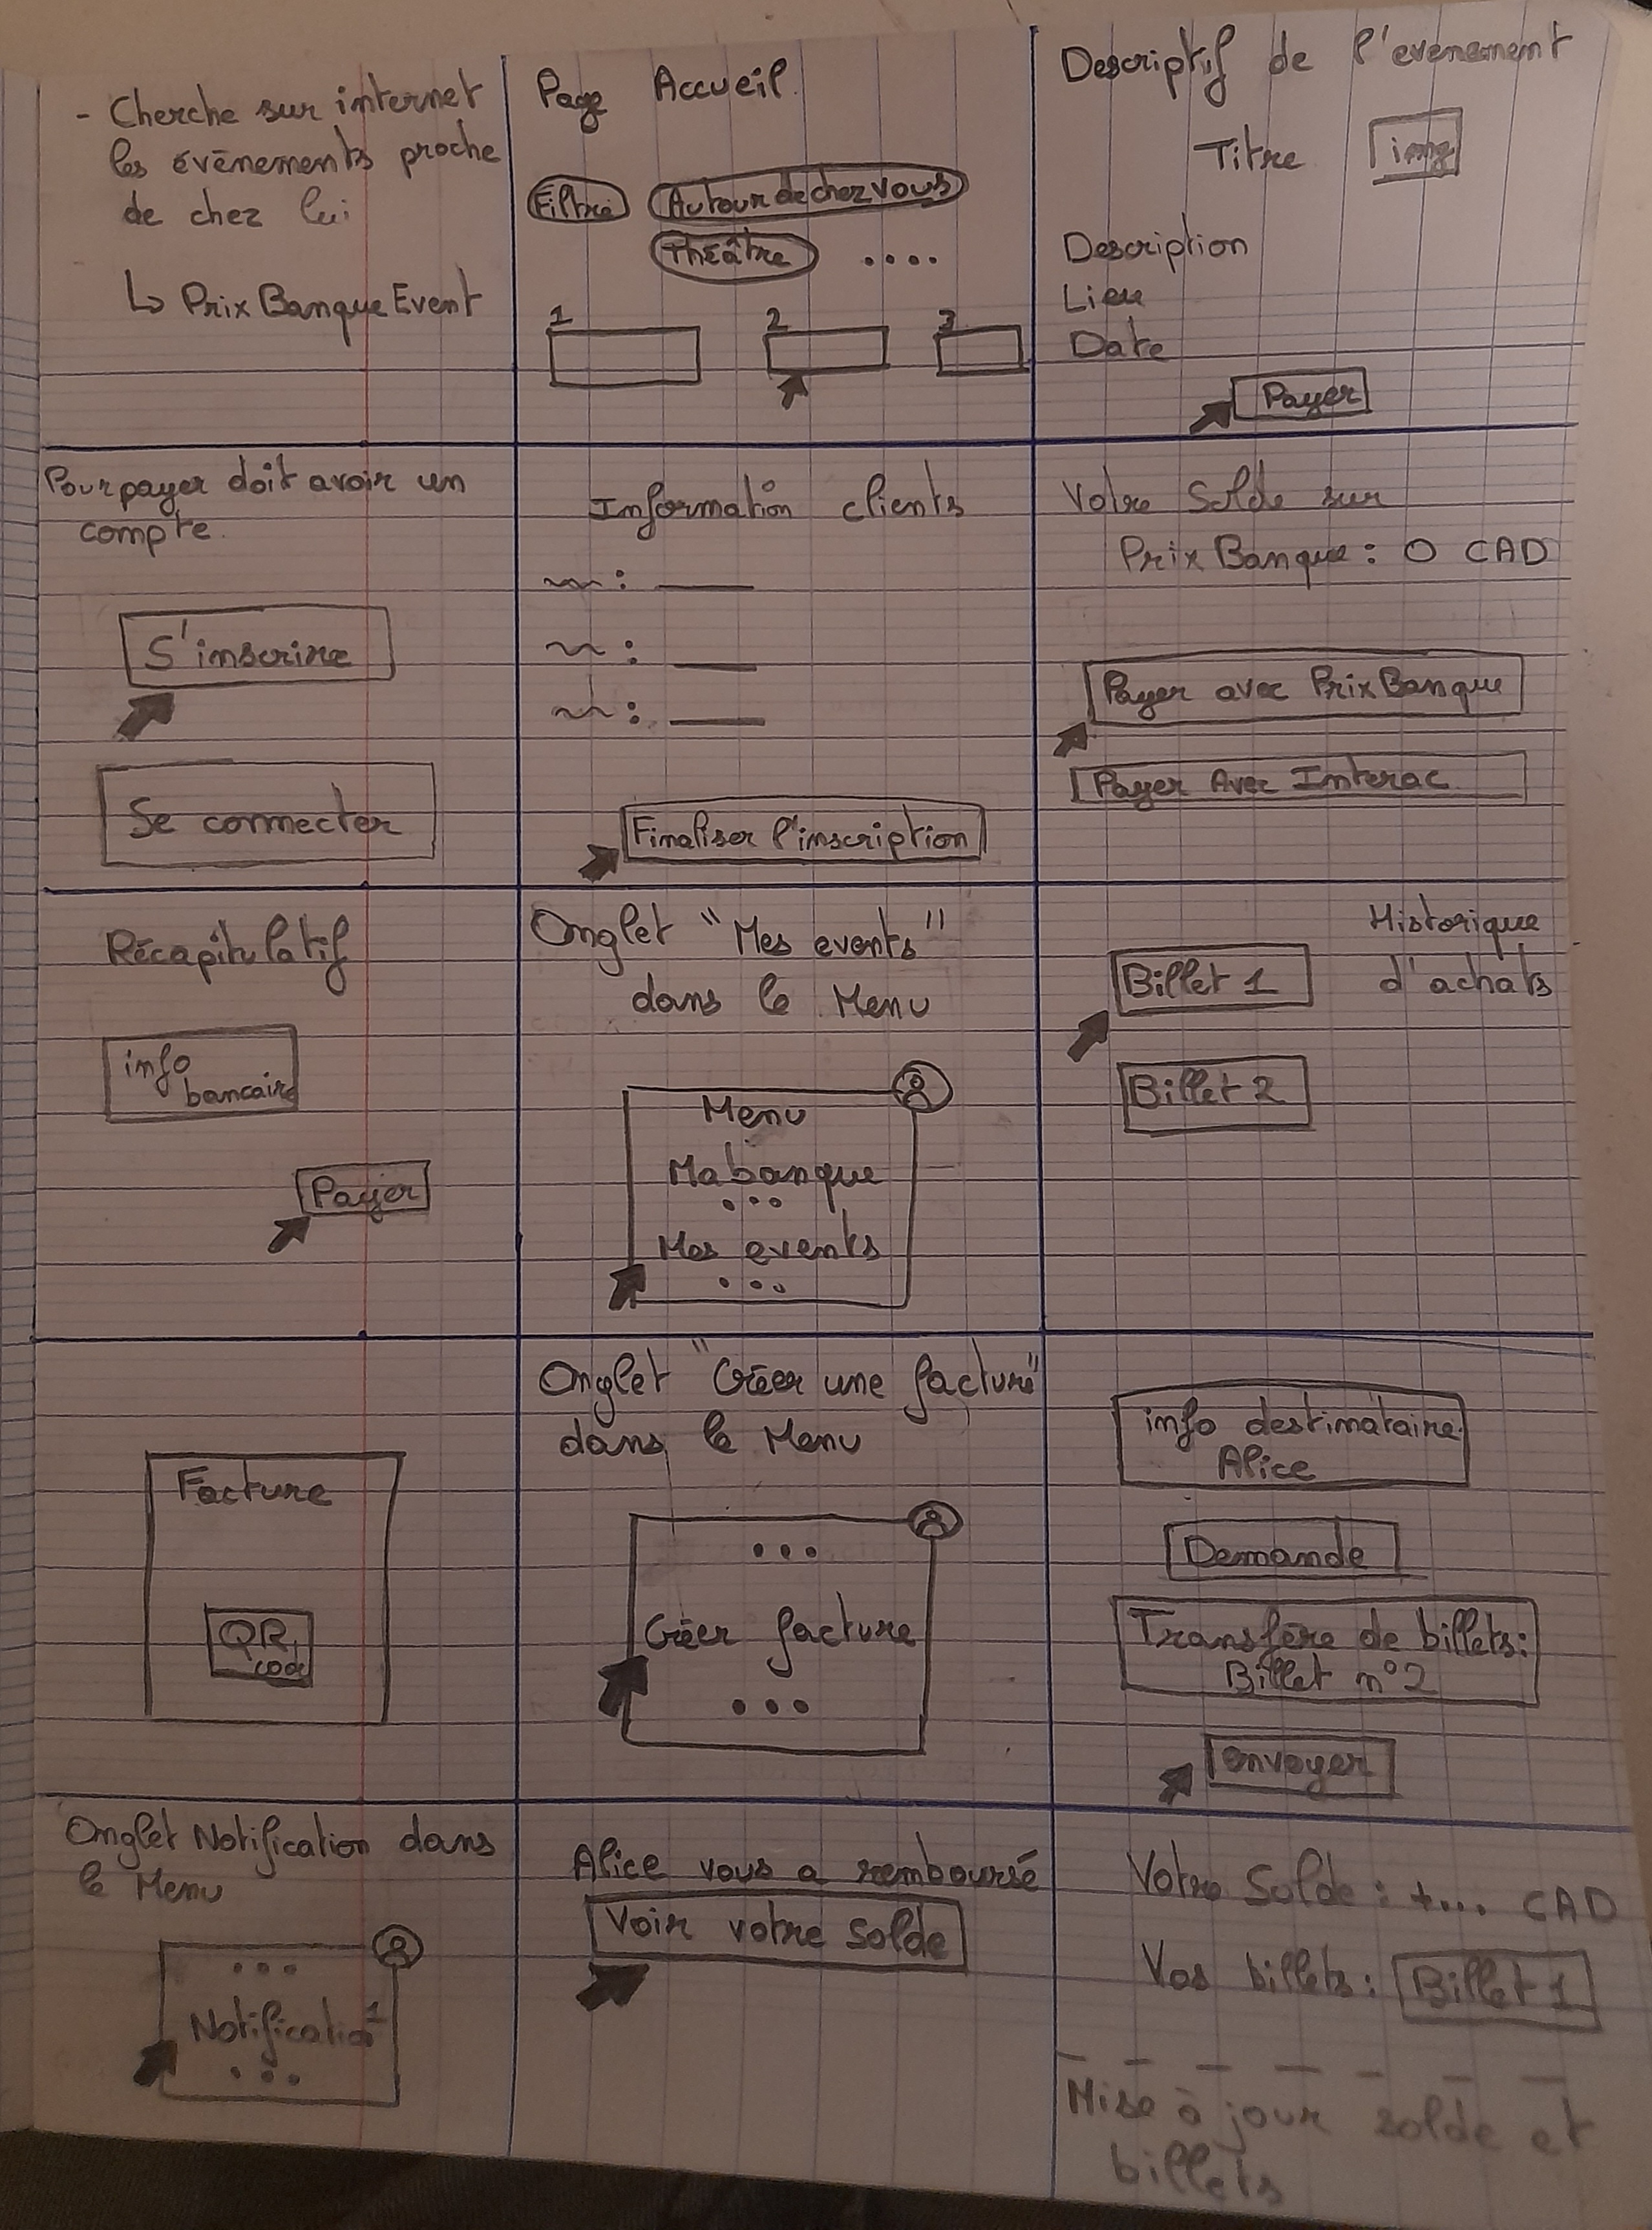 - Cherche sur internet
les évènements proche
de chez lui
↳ PrixBanqueEvent
Page Accueil
Filtre Autour de chez vous
Théâtre ....
1 2 3
Descriptif de l'evenement
Titre img
Description
Lieu
Date
Payer
Pour payer doit avoir un
compte.
S'inscrire
Se connecter
Information clients
Finaliser l'inscription
Votre Solde sur
PrixBanque : 0 CAD
Payer avec PrixBanque
Payer Avec Interac
Récapitulatif
info
bancaire
Payer
Onglet "Mes events"
dans le Menu
Menu
Ma banque
...
Mes events
...
Historique
d'achats
Billet 1
Billet 2
Facture
QR
code
Onglet "Créer une facture"
dans le Menu
...
Créer facture
...
info destinataire
Alice
Demande
Transfère de billets:
Billet n°2
envoyer
Onglet Notification dans
le Menu
...
Notification 1
...
Alice vous a remboursé
Voir votre solde
Votre Solde : +... CAD
Vos billets : Billet 1
Mise à jour solde et
billets